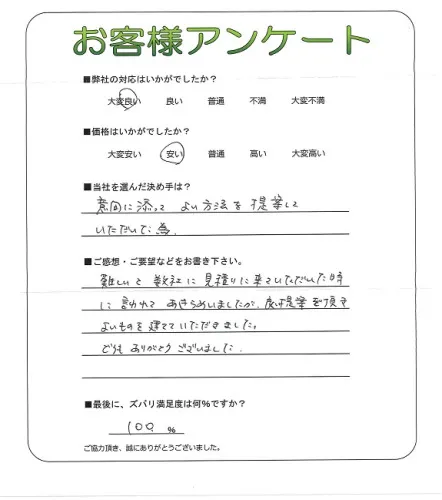 お客様アンケート
■弊社の対応はいかがでしたか?
大変良い 良い 普通 不満 大変不満
■価格はいかがでしたか?
大変安い 安い 普通 高い 大変高い
■当社を選んだ決め手は?
意向に添って よい方法を提案して
いただいた為.
■ご感想・ご要望などをお書き下さい。
難しいと数社に見積りに来ていただいた時
に言われて あきらめいましたが、提案を頂き
よいものを建てていただきました。
どうも ありがとうございました.
■最後に、ズバリ満足度は何%ですか?
100 %
ご協力頂き、誠にありがとうございました。